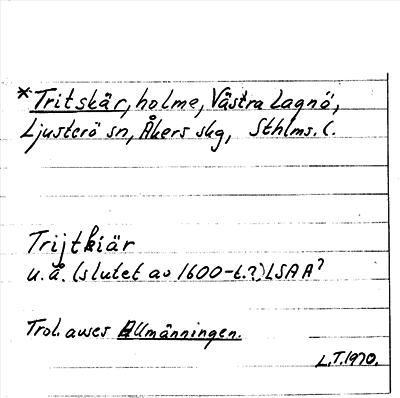 *Tritskär, holme, Västra Lagnö,
Ljusterö sn, Åkers skg, Sthlms. l.
Trijtkiär
u.å. (slutet av 1600-t.?) LSAA?
Trol. avses Allmänningen.
L.T. 1970.